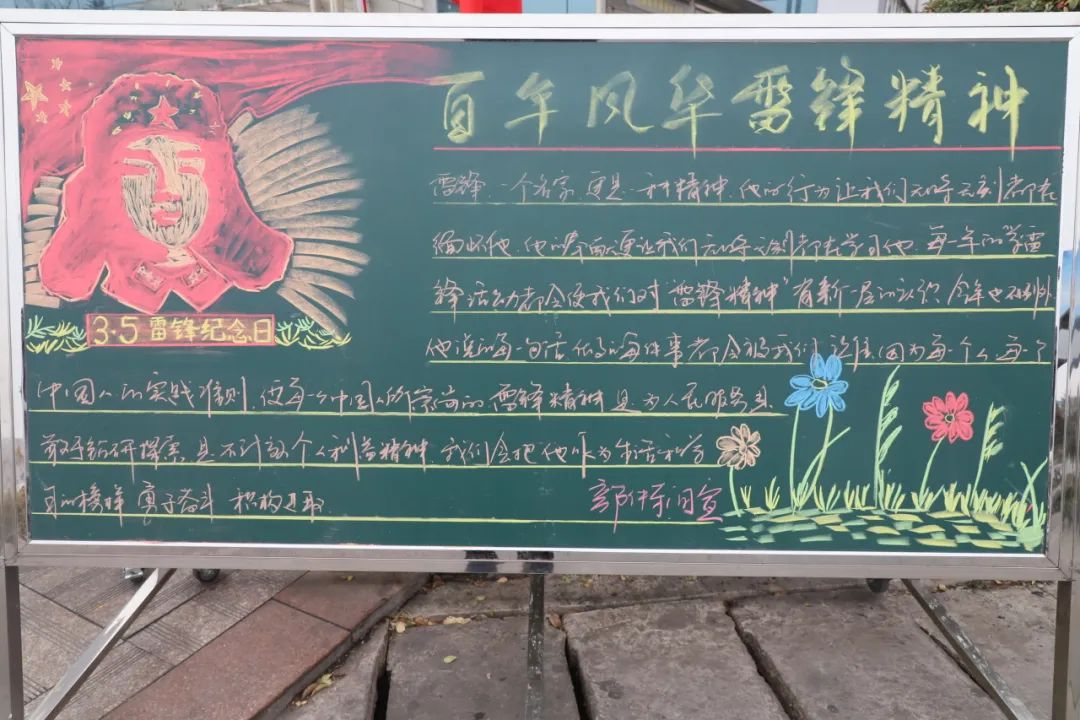 百年风华雷锋精神
雷锋,一个名字,更是一种精神,他的行为让我们无时无刻都在
缅怀他,他的奉献更让我们无时无刻都在学习他,每一年的学雷
锋活动都会使我们对"雷锋精神"有新一层的认识,今年也不例外
他说的每一句话,做的每件事都会被我们 因为每一个人每一个
3·5雷锋纪念日
中国人的实践准则,使每一个中国人所崇尚的,雷锋精神是为人民服务是
敢于钻研探索,是不计较个人利益精神,我们会把他作为生活和学
习的榜样 勇于奋斗 积极进取
宣